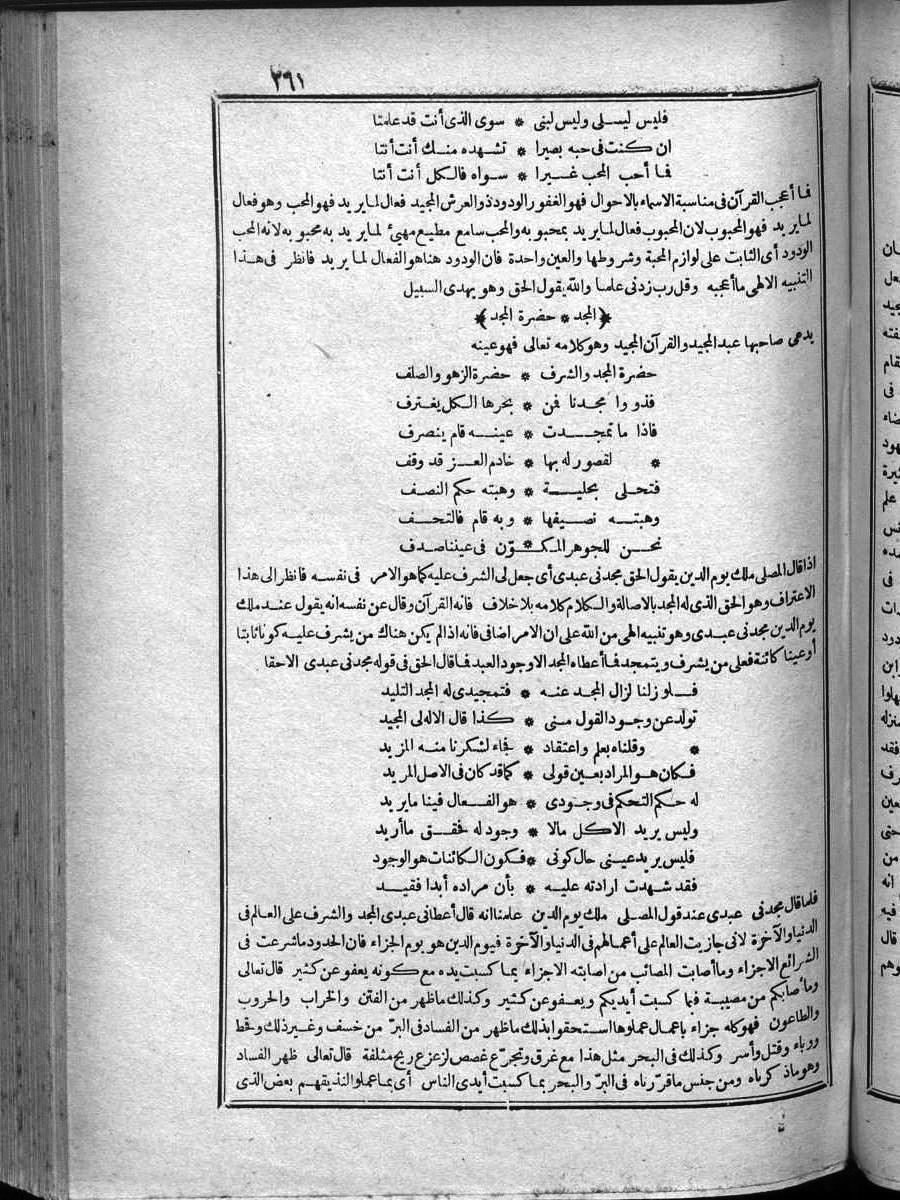 ٢٦١
فليس ليـــلى وليس لبنى * سوى الذى أنت قد علمتا
ان كنت فى حبه بصيرا * تشهده منك أنت أنتا
فما أحب المحب غيرا * سواه فالكل أنت أنتا
فما أعجب القرآن فى مناسبة الاسماء بالاحوال فهو الغفور الودود ذو العرش المجيد فعال لما يريد فهو المحب وهو فعال
لما يريد فهو المحبوب لان المحبوب فعال لما يريد بمحبوبه والمحب سامع مطيع مهيئ لما يريد به محبوبه لانه المحب
الودود أى الثابت على لوازم المحبة وشروطها والعين واحدة فان الودود هنا هو الفعال لما يريد فانظر فى هذا
التنبيه الالهى ما أعجبه وقل رب زدنى علما والله يقول الحق وهو يهدى السبيل
﴿المجد * حضرة المجد﴾
يدعى صاحبها عبد المجيد والقرآن المجيد وهو كلامه تعالى فهو عينه
حضرة المجد والشرف * حضرة الزهو والصلف
فذووا مجدنا فمن * بحرها الكل يغترف
فاذا ما تمجدت * عينه قام ينصرف
* لقصور له بها * خادم العز قد وقف
فتحلى بحلية * وهبته حكم النصف
وهبته نصيفها * وبه قام فالتحف
نحن للجوهر المكوّن * فى عيننا صدف
اذا قال المصلى ملك يوم الدين يقول الحق مجدنى عبدى أى جعل لى الشرف عليه كما هو الامر فى نفسه فانظر الى هذا
الاعتراف وهو الحق الذى له المجد بالاصالة والكلام كلامه بلاخلاف فانه القرآن وقال عن نفسه انه يقول عند ملك
يوم الدين مجدنى عبدى وهو تنبيه الهى من الله على ان الامر اضافى فانه اذا لم يكن هناك من يشرف عليه كونا ثابتا
أو عينا كائنة فعلى من يشرف ويتمجد فما أعطاه المجد الا وجود العبد فما قال الحق فى قوله مجدنى عبدى الاحقا
فلو زلنا لزال المجد عنه * فتمجيدى له المجد التليد
تولد عن وجود القول منى * كذا قال الاله لى المجيد
* وقلناه بعلم واعتقاد * فجاء لشكرنا منه المزيد
فكان هو المراد بعين قولى * كما قد كان فى الاصل المريد
له حكم التحكم فى وجودى * هو الفعال فينا ما يريد
وليس يريد الا كل مالا * وجود له فحقق ما أريد
فليس يريد عينى حال كونى * فكون الكائنات هو الوجود
فقد شهدت ارادته عليه * بأن مراده أبدا فقيد
فلما قال مجدنى عبدى عند قول المصلى ملك يوم الدين علمنا انه قال أعطانى عبدى المجد والشرف على العالم فى
الدنيا والآخرة لانى جازيت العالم على أعمالهم فى الدنيا والآخرة فيوم الدين هو يوم الجزاء فان الحدود ما شرعت فى
الشرائع الاجزاء وما أصابت المصائب من اصابته الاجزاء بما كسبت يده مع كونه يعفو عن كثير قال تعالى
وما أصابكم من مصيبة فبما كسبت أيديكم ويعفو عن كثير وكذلك ما ظهر من الفتن والخراب والحروب
والطاعون فهو كله جزاء باعمال عملوها استحقوا بذلك ما ظهر من الفساد فى البرّ من خسف وغير ذلك وقحط
ووباء وقتل وأسر وكذلك فى البحر مثل هذا مع غرق وتجرّع غصص لزعزع ريح مثلفة قال تعالى ظهر الفساد
وهو ماذكرناه ومن جنس ما قرّرناه فى البرّ والبحر بما كسبت أيدى الناس أى بما عملوا لنذيقهم بعض الذى